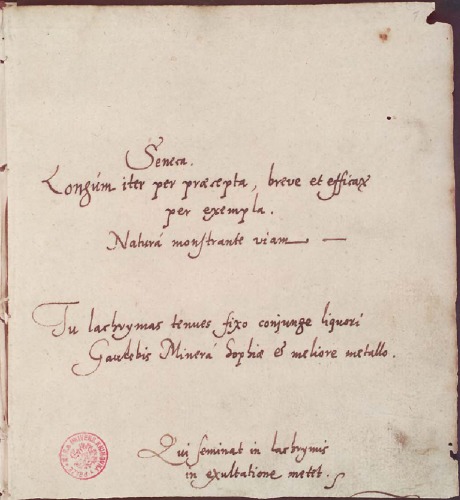 Seneca.
Longúm iter per præcepta, breve et efficax
per exempla.
Naturâ monstrante viam
Tu lachrymas tenues fixo conjunge liquori
Gaudebis Minerâ Sophiæ & meliore metallo.
Qui seminat in lachrymis
in exultatione metet.